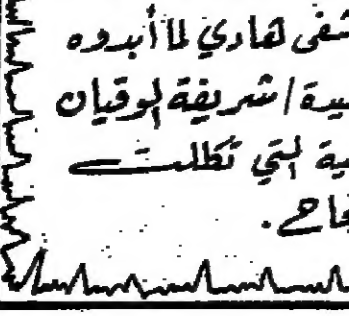 شفى هادي لما أبدوه
يدة / شريفة الوقيان
ية التي تكللت
جاح.